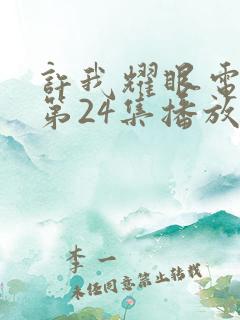 許我耀眼電
第24集播放
李一
未经同意禁止转载